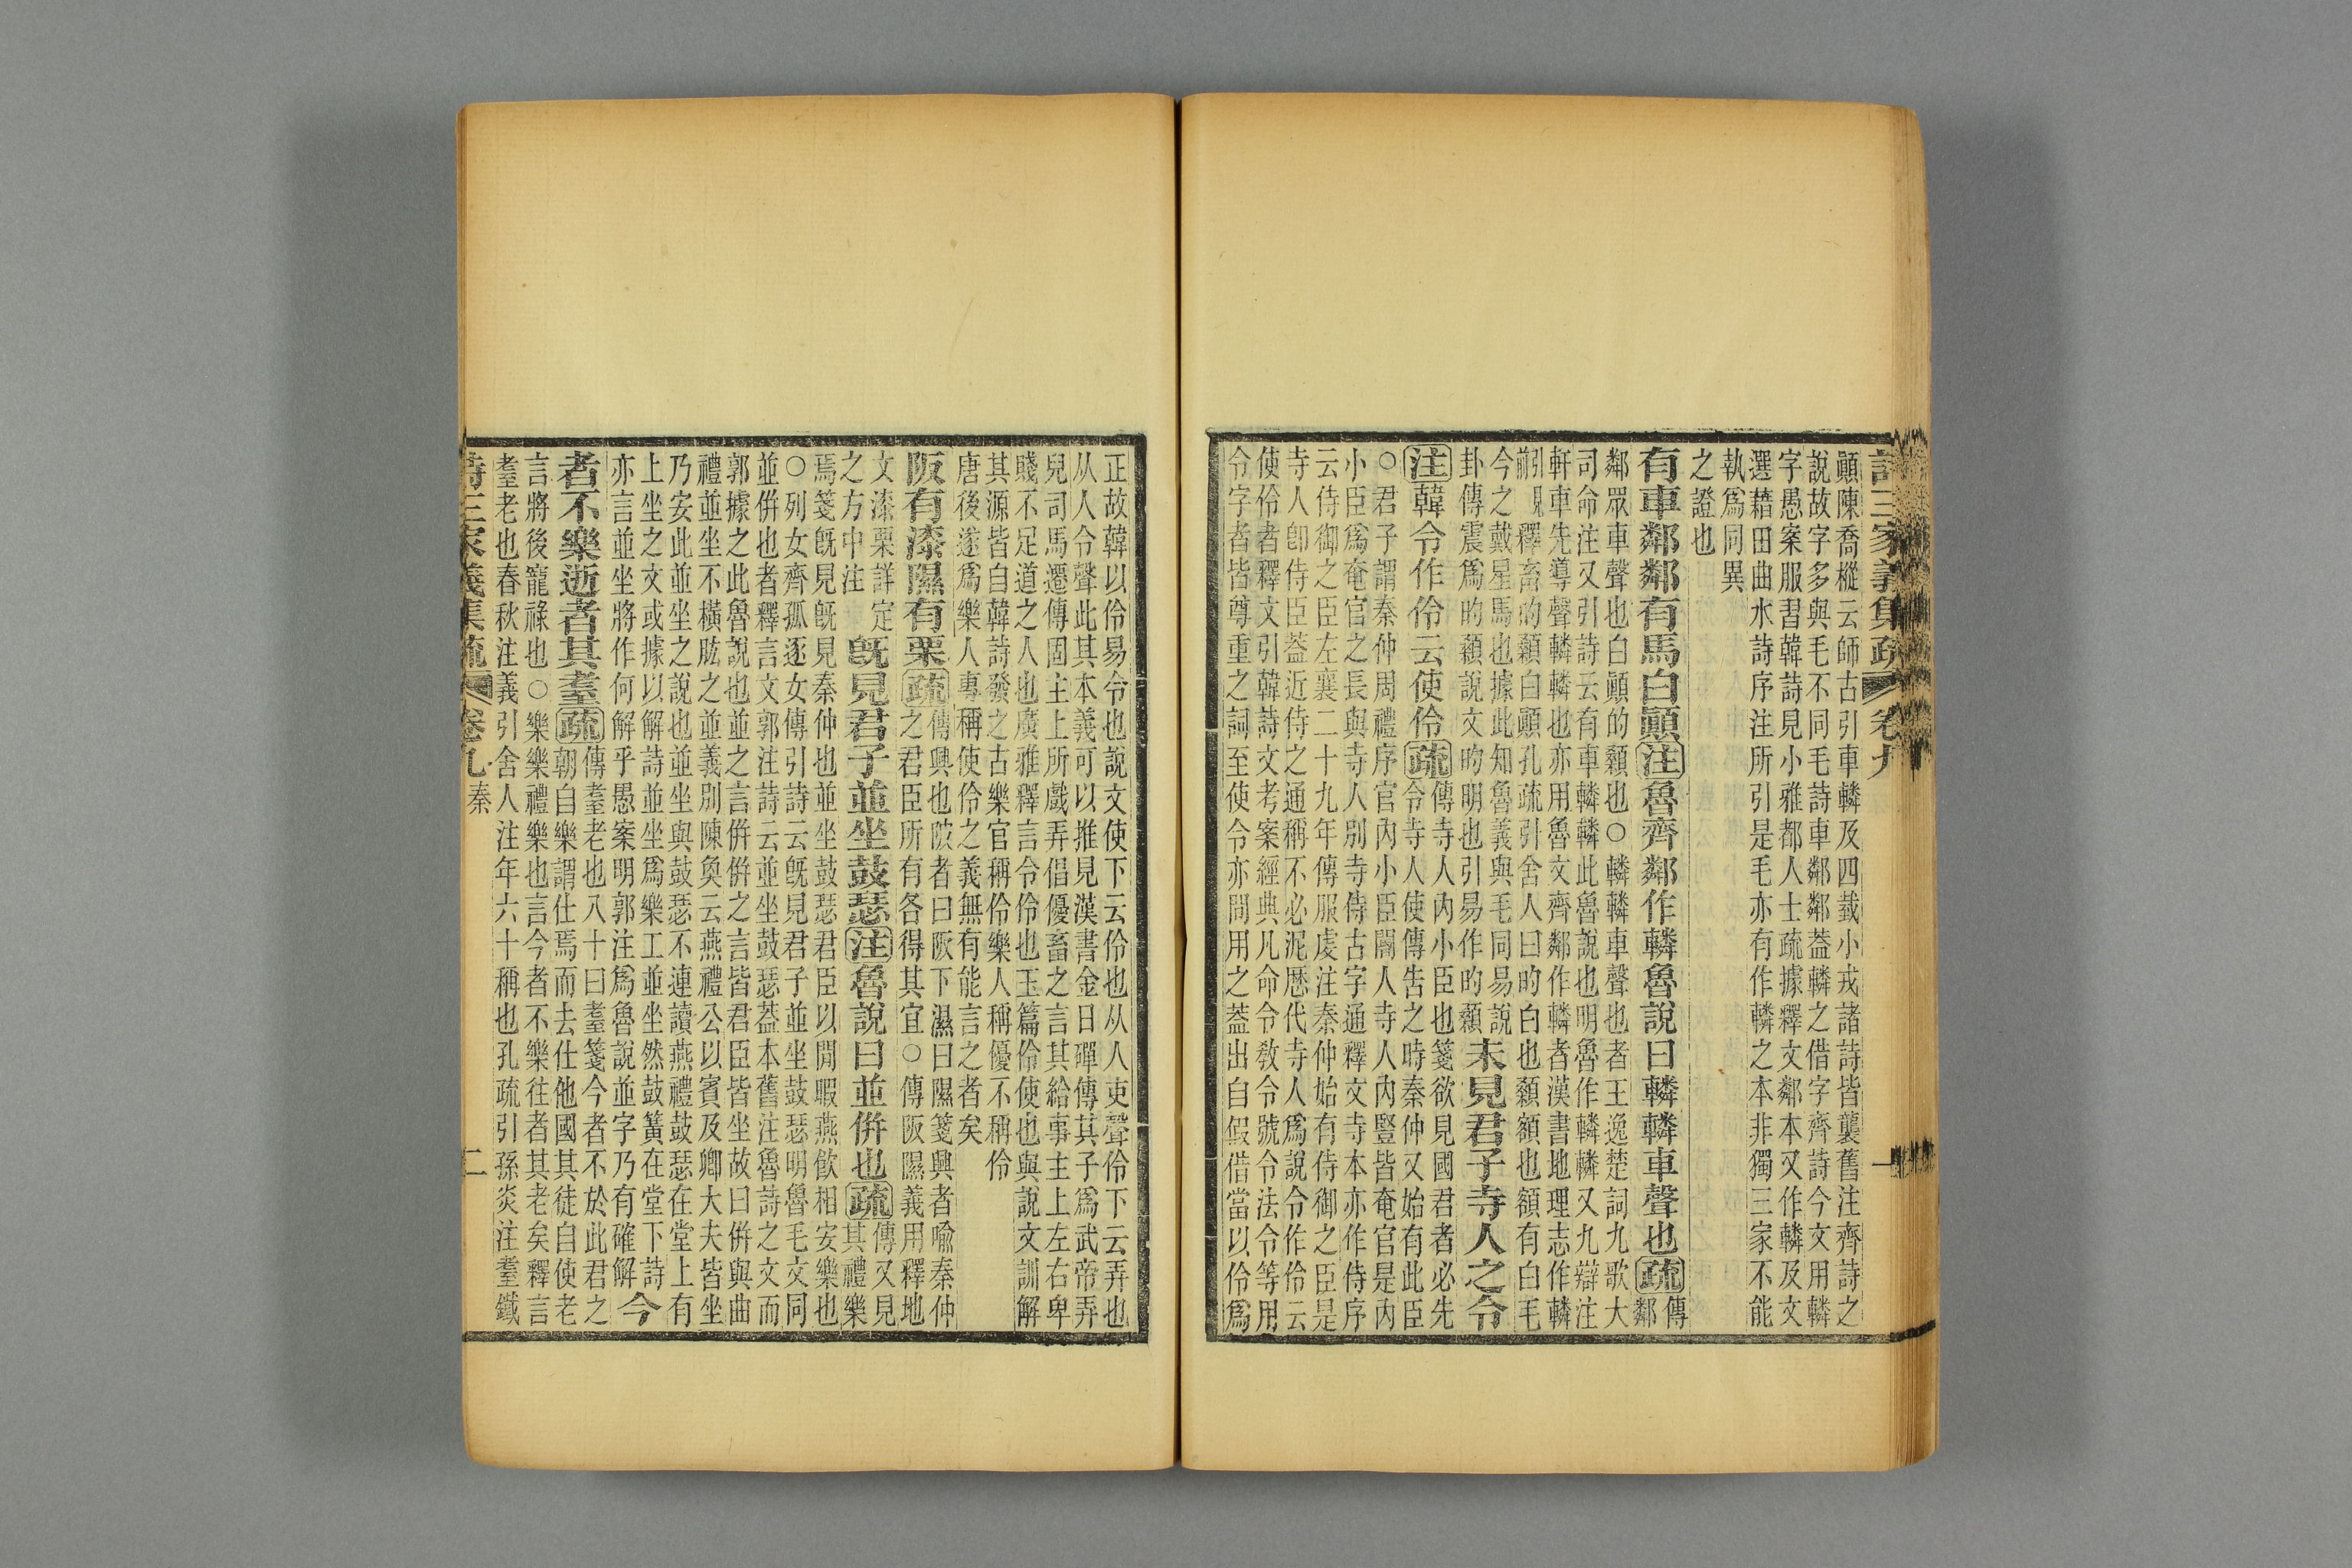 詩三家義集疏 卷九 一
顚陳喬樅云師古引車轔及四载小戎諸詩皆襲舊注齊詩之
說故字多與毛不同毛詩車鄰鄰葢轔之借字齊詩今文用轔
字愚案服習韓詩見小雅都人士疏據釋文鄰本又作轔及文
選藉田曲水詩序注所引是毛亦有作轔之本非獨三家不能
執爲同異
之證也
有車鄰鄰有馬白顚注魯齊鄰作轔魯說曰轔轔車聲也疏傳
鄰
鄰眾車聲也白顚的顙也○轔轔車聲也者王逸楚詞九歌大
司命注又引詩云有車轔轔此魯說也明魯作轔轔又九辯注
軒車先導聲轔轔也亦用魯文齊鄰作轔者漢書地理志作轔
引見釋畜的顙白顚孔疏引舍人曰的白也顙額也額有白毛
今之戴星馬也據此知魯義與毛同易說
卦傳震爲的顙說文旳明也引易作旳顙未見君子寺人之令
注韓令作伶云使伶疏傳寺人內小臣也箋欲見國君者必先
令寺人使傳告之時秦仲又始有此臣
○君子謂秦仲周禮序官內小臣閽人寺人內豎皆奄官是內
小臣爲奄官之長與寺人別寺侍古字通釋文寺本亦作侍序
云侍御之臣左襄二十九年傳服虔注秦仲始有侍御之臣是
寺人卽侍臣葢近侍之通稱不必泥歷代寺人爲說令作伶云
使伶者釋文引韓詩文考案經典凡命令敎令號令法令等用
令字者皆尊重之詞至使令亦間用之葢出自假借當以伶爲
正故韓以伶易令也說文使下云伶也从人吏聲伶下云弄也
从人令聲此其本義可以推見漢書金日磾傳其子爲武帝弄
兒司馬遷傳固主上所戲弄倡優畜之言其給事主上左右卑
賤不足道之人也廣雅釋言令伶也玉篇伶使也與說文訓解
其源皆自韓詩發之古樂官稱伶樂人稱優不稱伶
唐後遂爲樂人專稱使伶之義無有能言之者矣
阪有漆隰有栗疏傳興也陂者曰阪下濕曰隰箋興者喩秦仲
之君臣所有各得其宜○傳阪隰義用釋地
文漆栗詳定
之方中注旣見君子並坐鼓瑟注魯說曰並倂也疏傳又見
其禮樂
焉箋旣見旣見秦仲也並坐鼓瑟君臣以閒暇燕飮相安樂也
○列女齊孤逐女傳引詩云旣見君子並坐鼓瑟明魯毛文同
並倂也者釋言文郭注詩云並坐鼓瑟葢本舊注魯詩之文而
郭據之此魯說也並之言倂倂之言皆君臣皆坐故曰倂與曲
禮並坐不橫肱之並義別陳奐云燕禮公以賓及卿大夫皆坐
乃安此並坐之說也並坐與鼓瑟不連讀燕禮鼓瑟在堂上有
上坐之文或據以解詩並坐爲樂工並坐然鼓簧在堂下詩
亦言並坐將作何解乎愚案明郭注爲魯說並字乃有確解今
者不樂逝者其耋疏傳耋老也八十曰耋箋今者不於此君之
朝自樂謂仕焉而去仕他國其徒自使老
言將後寵祿也○樂樂禮樂也言今者不樂往者其老矣釋言
耋老也春秋注義引舍人注年六十稱也孔疏引孫炎注耋鐵
詩三家義集疏 卷九 秦 二